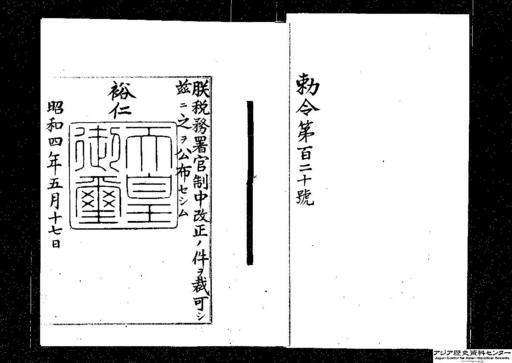 勅令第百二十號
朕税務署官制中改正ノ件ヲ裁可シ
茲ニ之ヲ公布セシム
裕仁
天皇
御璽
昭和四年五月十七日
アジア歴史資料センター
Japan Center for Asian Historical Records